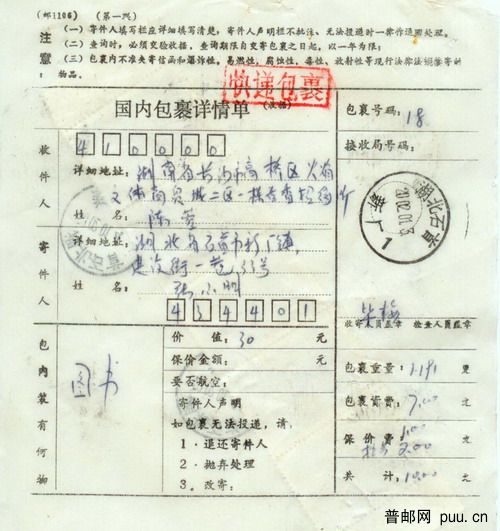 (邮1106) (第一联)
注意：
(一) 寄件人填写栏应详细填写清楚，寄件人声明栏不批注、无法投递时一律作退回处理。
(二) 查询时，必须交验收据，查询期限自交寄包裹之日起，以一年为限；
(三) 包裹内不准夹寄信函和爆炸性、易燃性、腐蚀性、毒性、放射性等现行法律法规禁寄的物品。
快递包裹
国内包裹详情单 (收据)
包裹号码：18
接收局号码：
收件人
410000
详细地址：湖南省长沙市高桥区
姓名：陈
寄件人
详细地址：湖北省石首市新厂镇
建设街一巷33号
姓名：张小明
434401
湖北石首
新厂
1
收寄人员盖章 检查人员盖章
包内装有何物
图书
价值：30 元
保价金额： 元
要否航空：
寄件人声明
如包裹无法投递，请：
1·退还寄件人
2·抛弃处理
3·改寄：
包裹重量：1.191
包裹资费：7.00 元
保价费 1.00
3.00 元
共计：10.00 元
普邮网 puu.cn